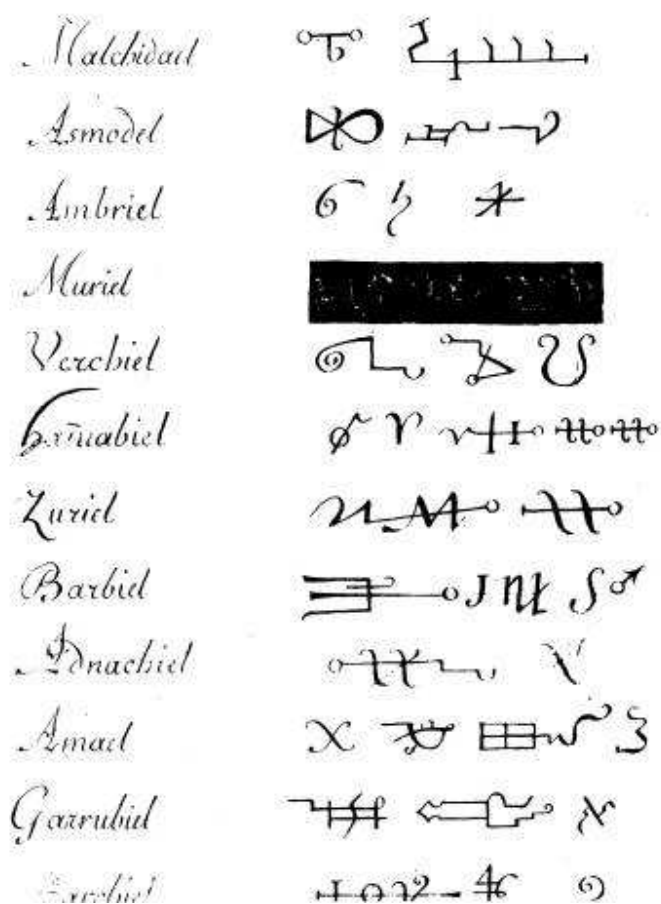 Malchidael
Asmodel
Ambriel
Muriel
Verchiel
Zuriel
Barbiel
Adnachiel
Amael
Garrubiel